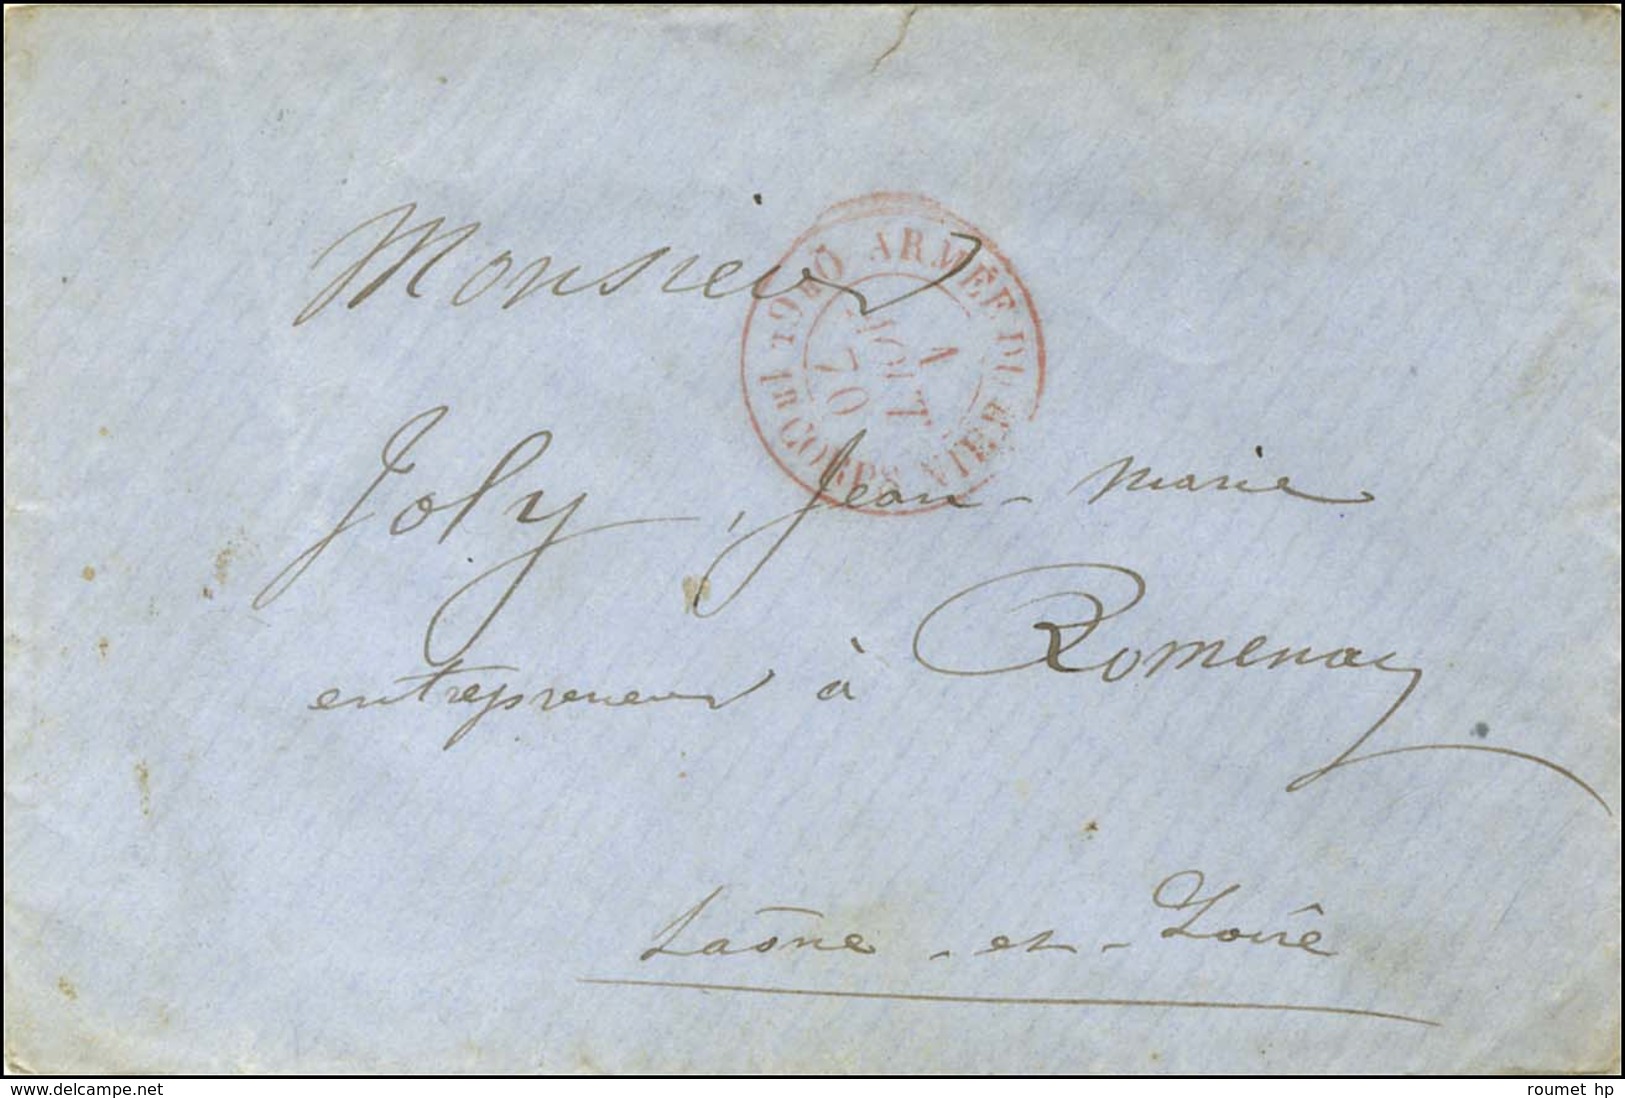 Monsieur
ARMÉE DU RHIN
1R CORPS
AOUT
70
Joly, Jean-Marie
entrepreneur à Romenay
Saône-et-Loire
www.delcampe.net
roumet hp